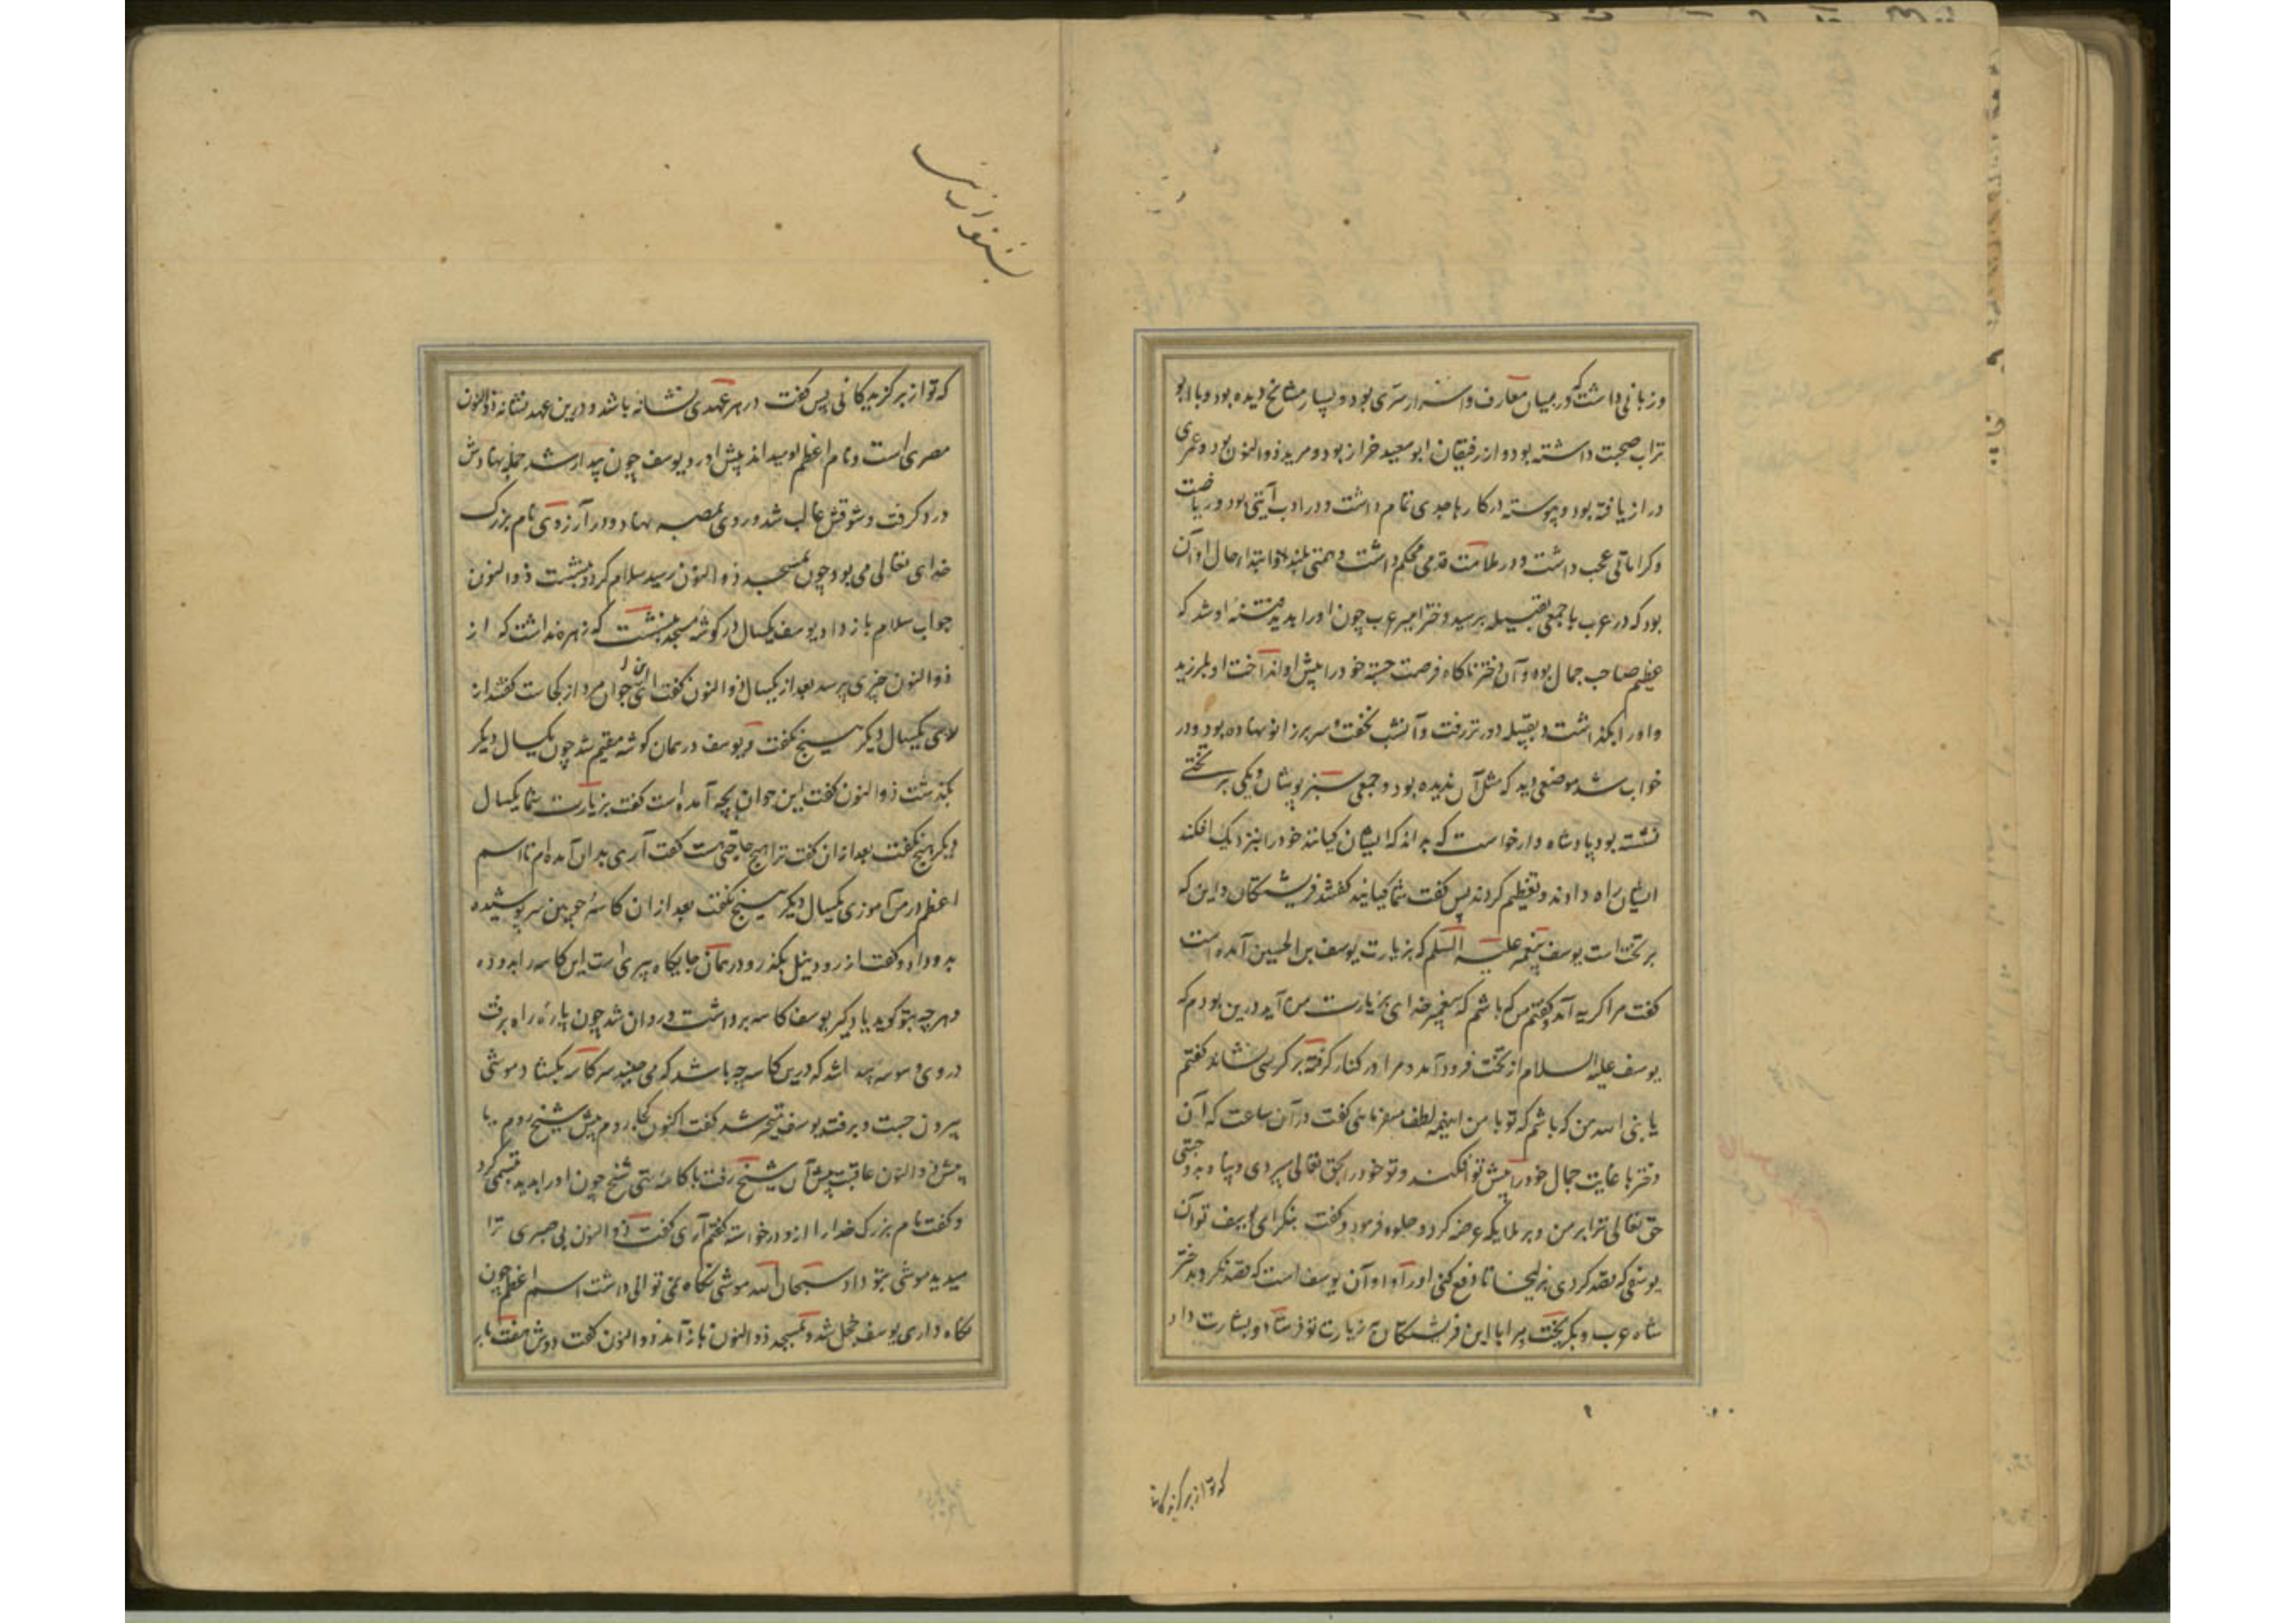 و زبانی داشت که در میان معارف و اسرار سری بود و بسیار مشایخ دیده بود و با ابو
تراب صحبت داشته بود و از رفیقان ابو سعید خراز بود و مرید ذو النون بود و عمری
دراز یافته بود و پیوسته در کارها جدی تمام داشت و در ادب آیتی بود و ریاضت
و کراماتی عجب داشت و در ملامت قدمی محکم داشت و همتی بلند و ابتدا حال او آن
بود که در عرب با جمعی بقبیله برسید دختر امیر عرب چون او را بدید فتنهٔ او شد که
عظیم صاحب جمال بود و آن دختر ناکاه فرصت جسته خود را پیش او انداخت او بلرزید
و او را بگذاشت و بقبیله دورتر رفت و آنشب نخفت و سر بر زانو نهاده بود و در
خواب شد موضعی دید که مثل آن ندیده بود و جمعی سبز پوشان و یکی بر تختی
نشسته بود پادشاه وار خواست که بداند که ایشان کیانند خود را بنزدیک افکند
ایشان راه دادند و تعظیم کردند پس کفت شما کیانید کفتند فریشتکان و این که
بر تخت است یوسف پیغمبر علیه السلم که بزیارت یوسف بن الحسین آمده است
کفت مرا کریه آمد و کفتم من که باشم که پیغمبر خدای بزیارت من آید درین بودم که
یوسف علیه السلام از تخت فرود آمد و مرا در کنار کرفته بر کرسی نشاند کفتم
یا نبی الله من که باشم که تو با من اینهمه لطف میفرمائی کفت در آن ساعت که آن
دختر با غایت جمال خود را پیش تو افکند و تو خود را بحق تعالی سپردی و پناه بدو جستی
حق تعالی ترا بر من و بر ملایکه عرضه کرد و جلوه فرمود و کفت بنکر ای یوسف تو آن
یوسفی که قصد کردی بزلیخا تا دفع کنی او را و او آن یوسف است که قصد نکرد بدختر
شاه عرب و بکریخت مرا با این فریشتکان بزیارت تو فرستاد و بشارت داد
که تو از برکزیدکانی
بشنو ازینـ
که تو از برکزیدکانی پس کفت در هر عهدی نشانه باشد و درین عهد نشانه ذو النون
مصری است و نام اعظم او میداند پیش او رو یوسف چون بیدار شد جمله نهادش
درد کرفت و شوقش غالب شد و روی بمصر نهاد و در آرزوی نام بزرک
خدای تعالی می بود چون بمسجد ذو النون رسید سلام کرد و بنشست ذو النون
جواب سلام باز داد یوسف یکسال در کوشهٔ مسجد بنشست که زهره نداشت که از
ذو النون چیزی پرسد بعد از یکسال ذو النون کفت این جوان مرد از کجاست کفتند از
ری یکسال دیکر هیچ نکفت و یوسف در همان کوشه مقیم شد چون یکسال دیکر
بکذشت ذو النون کفت این جوان بچه آمده است کفت بزیارت شما یکسال
دیکر هیچ نکفت بعد از آن کفت ترا هیچ حاجتی هست کفت آری بدان آمده ام تا اسم
اعظم در من آموزی یکسال دیکر هیچ نکفت بعد از ان کاسهٔ چوبین سر پوشیده
بدو داد و کفت از رود نیل بکذر و در همان جایکاه پیری است این کاسه را بدو ده
و هر چه بتو کوید یاد کیر یوسف کاسه برداشت و روان شد چون پارهٔ راه برفت
در وی وسوسه پیدا شد که درین کاسه چه باشد که می جنبد سر کاسه بکشاد موشی
بیرون جست و برفت یوسف متحیر شد کفت اکنون کجا روم پیش شیخ روم یا
پیش ذو النون عاقبت پیش آن شیخ رفت با کاسه تهی شیخ چون او را بدید تبسمی کرد
و کفت نام بزرک خدا را ازو درخواسته کفتم آری کفت ذو النون بی صبری ترا
میدید موشی بتو داد سبحان الله موشی نکاه نمی توانی داشت اسم اعظم چون
نکاه داری یوسف خجل شد و بمسجد ذو النون باز آمد ذو النون کفت دوش هفت بار